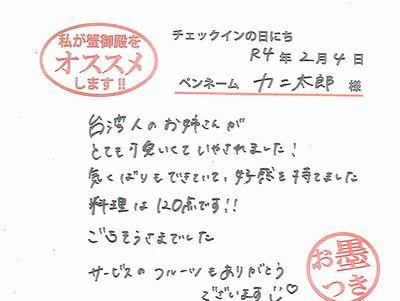 私が蟹御殿を
オススメ
します!!
チェックインの日にち
R4年2月4日
ペンネーム カニ太郎 様
台湾人のお姉さんが
とても可愛いくていやされました！
気くばりもできていて、好感を持てました
料理は120点です!!
ごちそうさまでした
サービスのフルーツもありがとう
ございます
お墨
つき